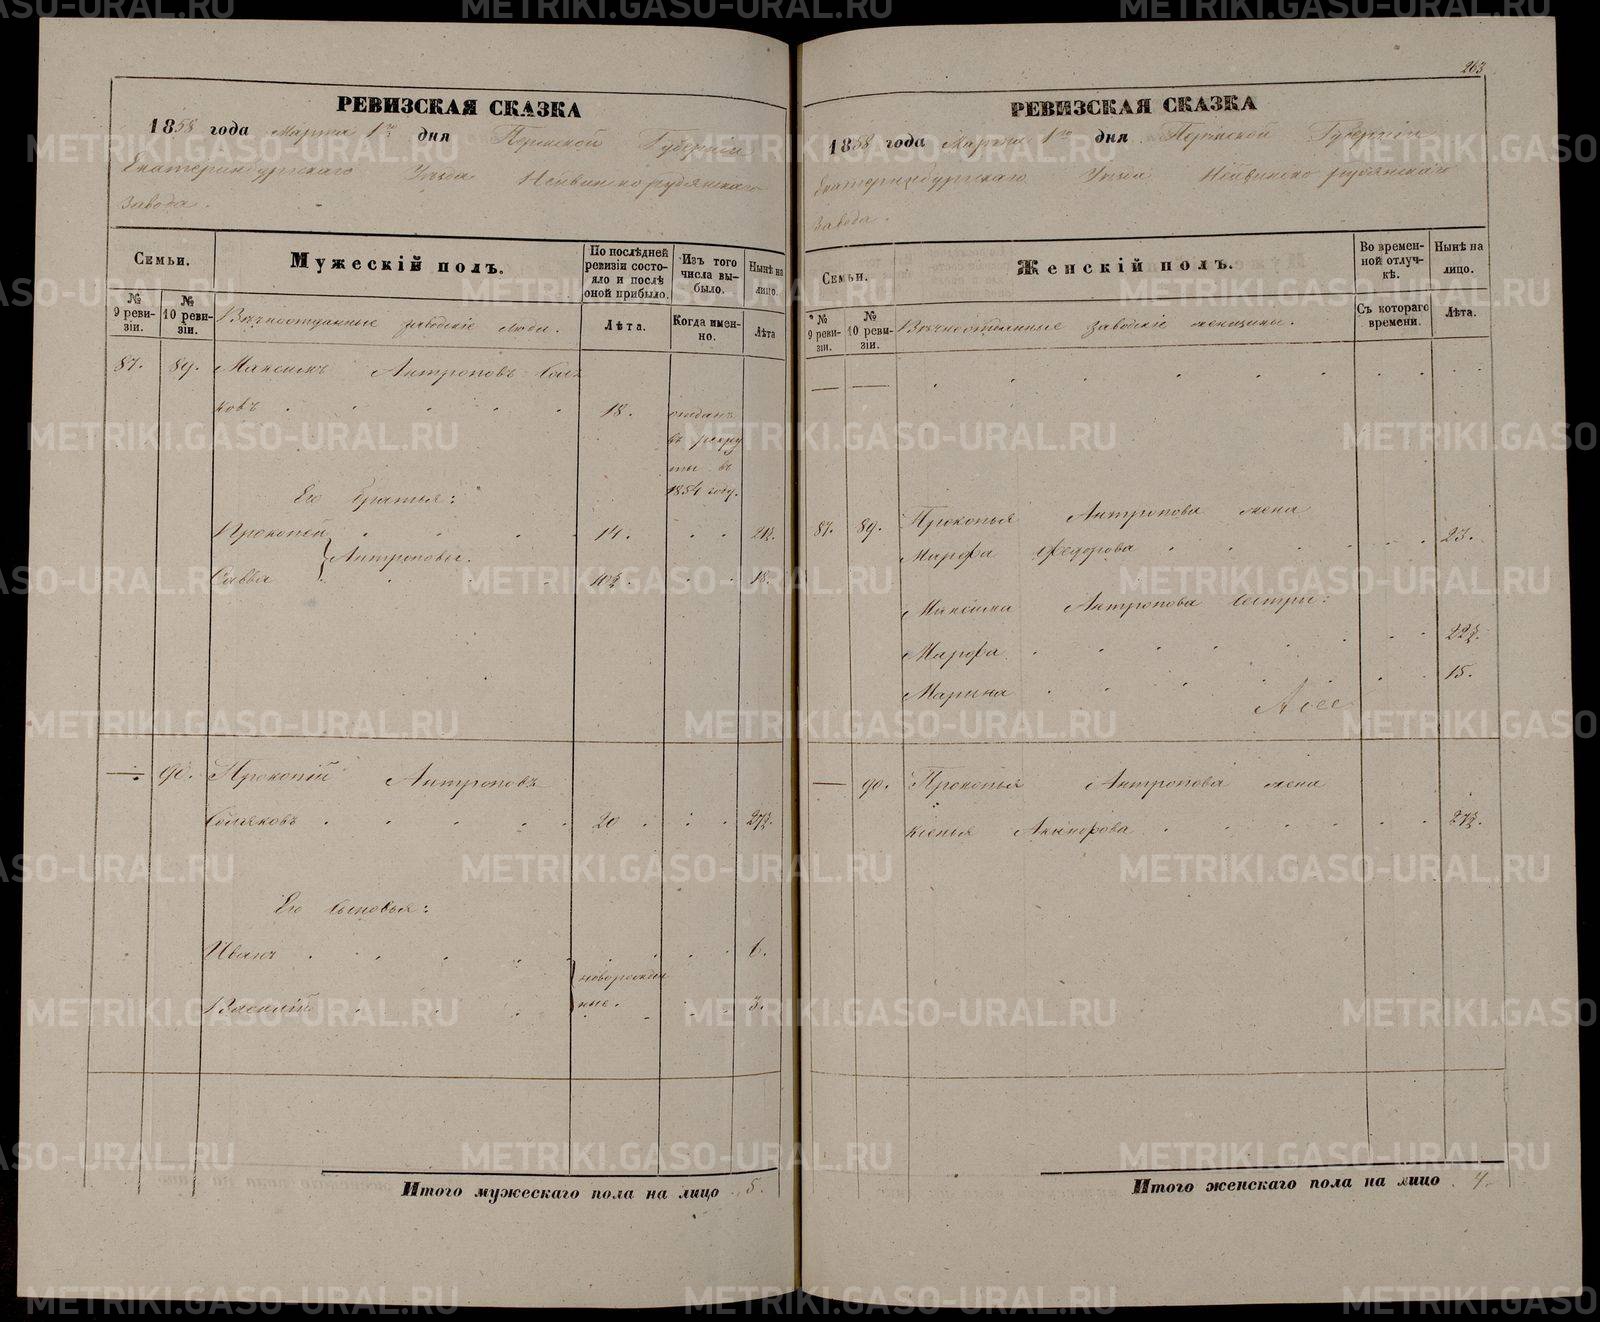 РЕВИЗСКАЯ СКАЗКА
1858 года Марта 1го дня Пермской Губернiи
Екатеринбургскаго Уѣзда Нейвинскорудянскаго
Завода.
Семьи.
Мужескiй полъ.
По послѣдней ревизiи состояло и послѣ оной прибыло.
Изъ того числа выбыло.
Нынѣ на лицо.
№ 9 ревизiи.
№ 10 ревизiи.
заводскiе люди.
Лѣта.
Когда именно.
Лѣта
87. 89. Максимъ Антроповъ
ковъ 18. отданъ
въ рекру
ты въ
1854 году.
Его братья:
Прокопей 14. 21½.
Антроповы.
Савва 10½. 18.
— 90. Прокопiй Антроповъ
20 27½.
Его сыновья:
Иванъ 6.
новорожден
ные.
Василiй 3.
Итого мужескаго пола на лицо 5.
263
РЕВИЗСКАЯ СКАЗКА
1858 года Марта 1го дня Пермской Губернiи
Екатеринбургскаго Уѣзда Нейвинскорудянскаго
Завода.
Семьи.
Женскiй полъ.
Во временной отлучкѣ.
Нынѣ на лицо.
№ 9 ревизiи.
№ 10 ревизiи.
заводскiе женщины.
Съ котораго времени.
Лѣта.
— —
87. 89. Прокопья Антропова жена
Марфа Федорова 23.
Максима Антропова сестры:
Марфа 22½.
Марина 15.
— 90. Прокопья Антропова жена
27½.
Итого женскаго пола на лицо 4.
METRIKI.GASO-URAL.RU